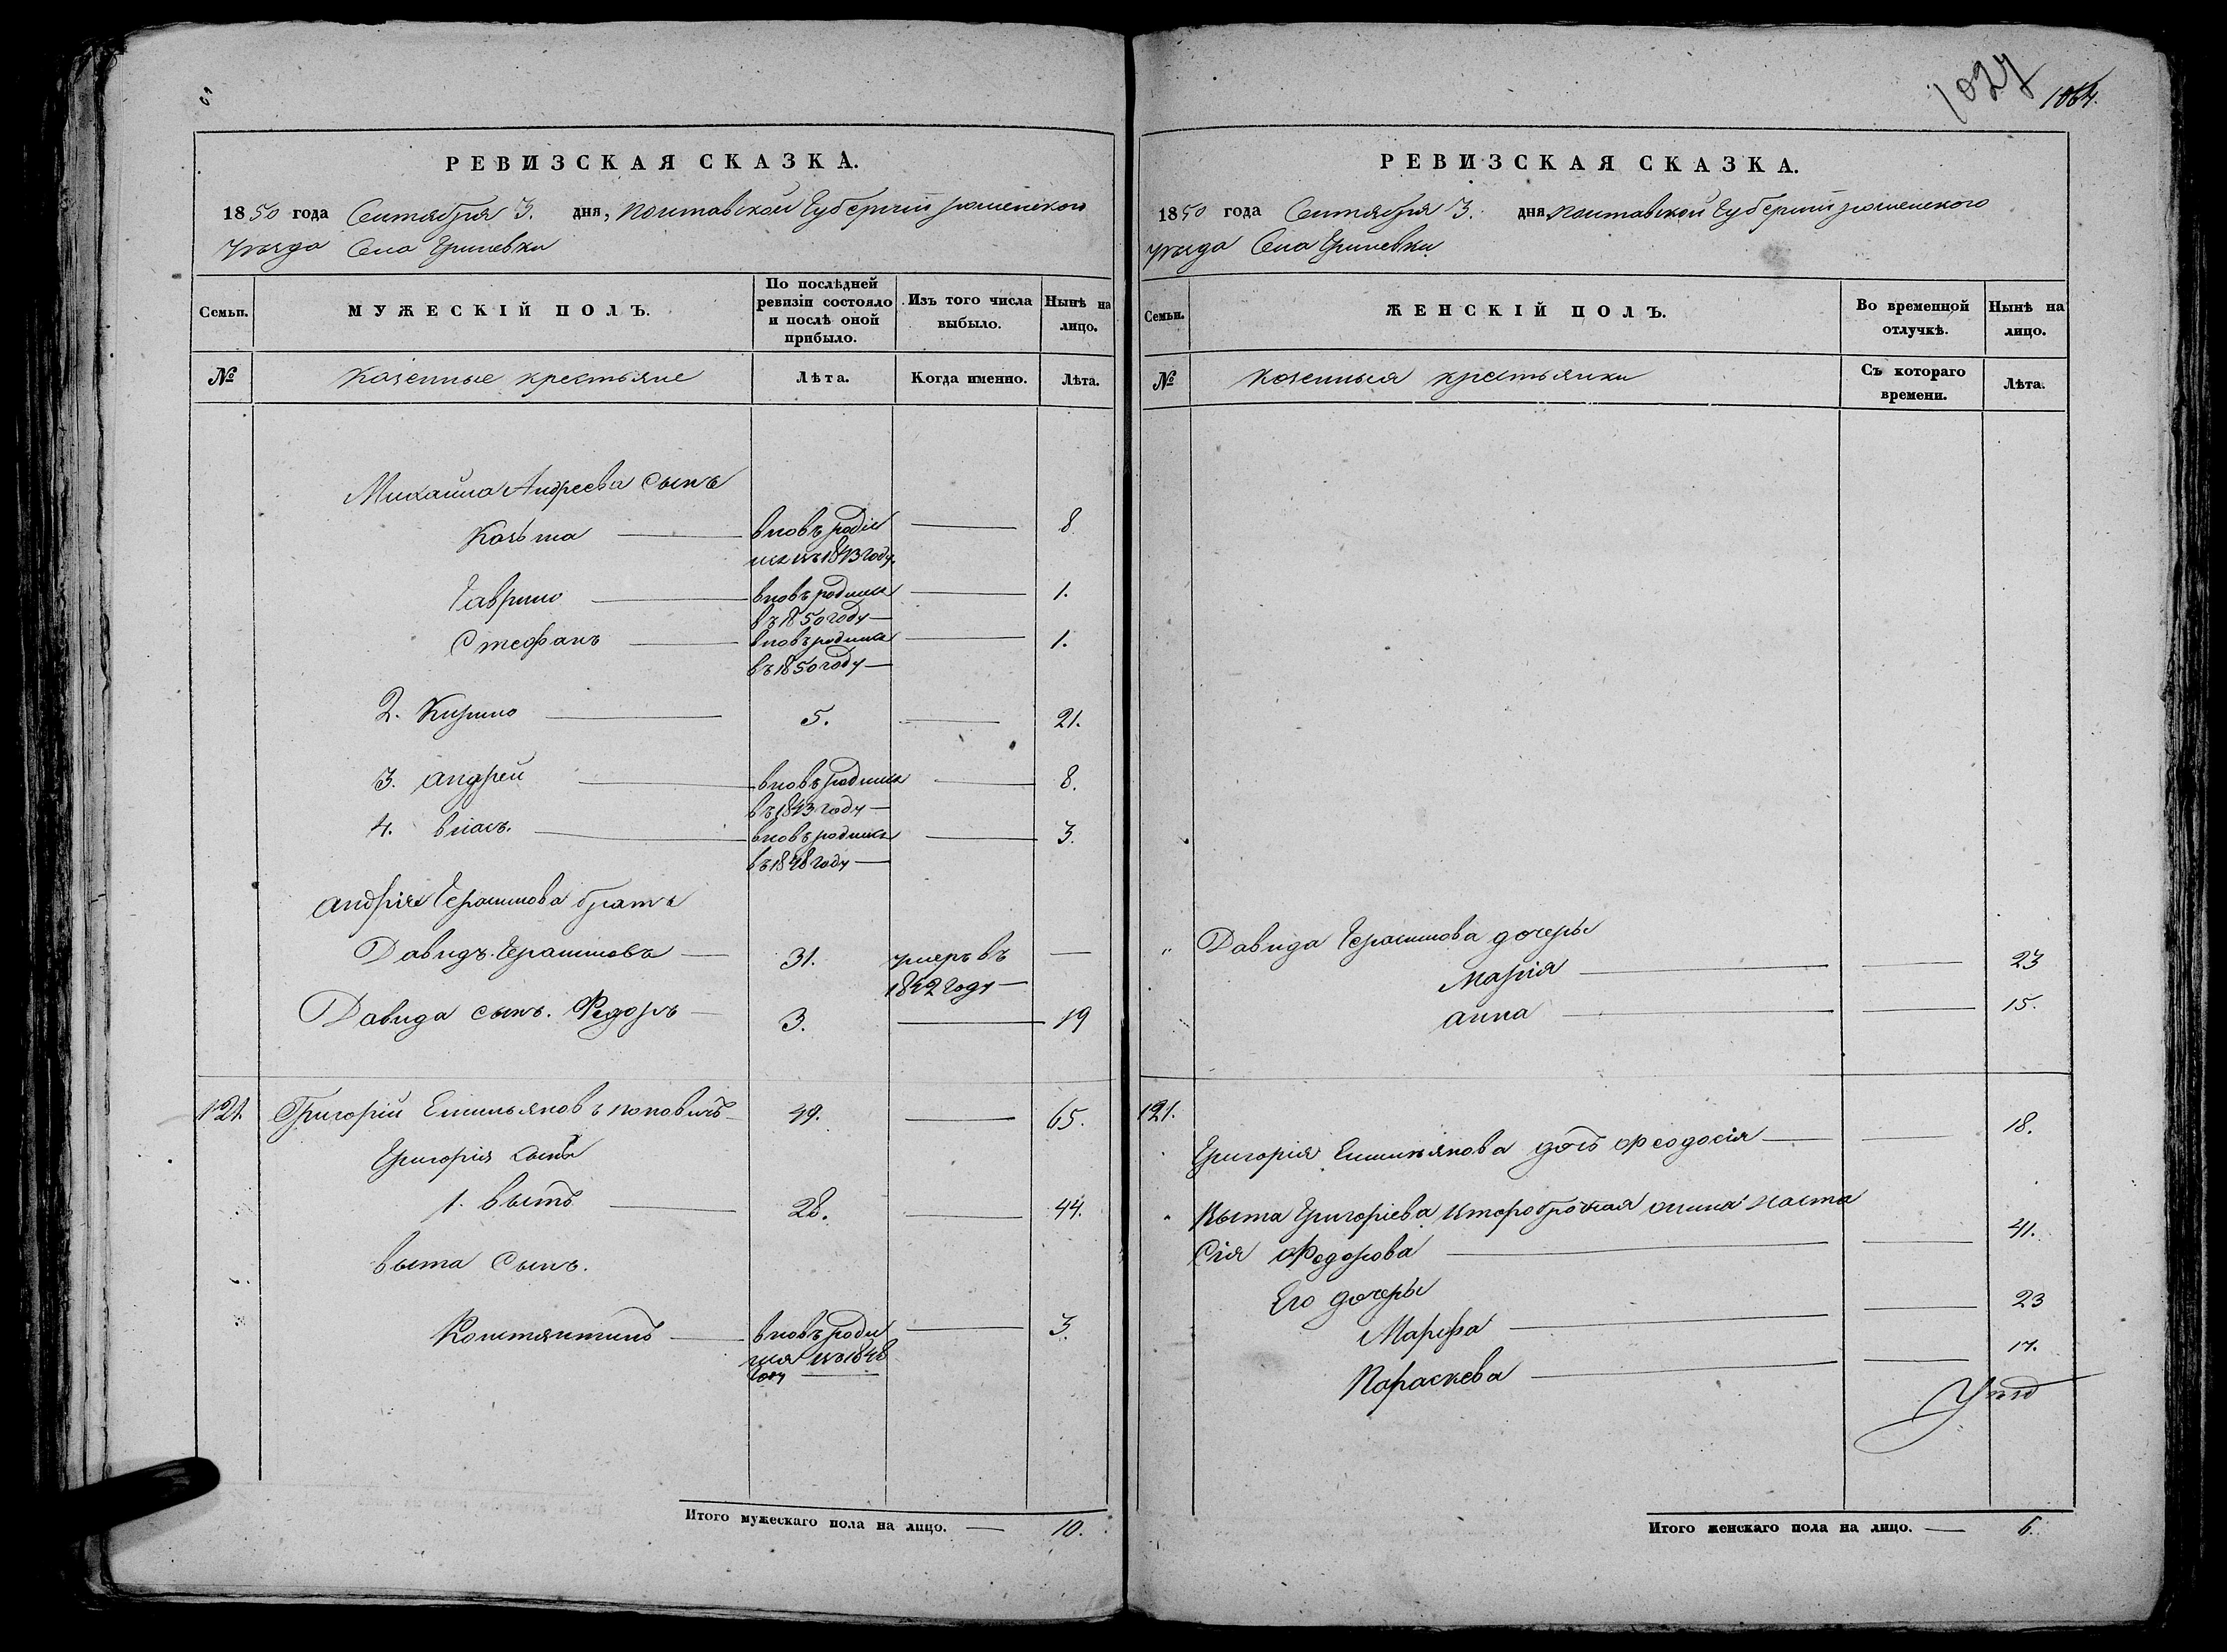 РЕВИЗСКАЯ СКАЗКА.
1850 года Сентября 3. дня, Полтавской Губернии роменского
уезда Села Гриневки
Семьи. МУЖЕСКІЙ ПОЛЪ. По послѣдней ревизіи состояло и послѣ оной прибыло. Изъ того числа выбыло. Нынѣ на лицо.
№ Казенные крестьяне Лѣта. Когда именно. Лѣта.
Михаила Андреева сынъ
Козьма вновь роди 8
въ 1843 году.
Гаврило вновь родился 1.
въ 1850 году
Стефанъ вновь родился 1.
въ 1850 году
2. Кирило 5. 21.
3. андрей вновь родился 8.
въ 1843 году
4. власъ. вновь родился 3.
въ 1848 году
андрія Герасимова братъ
Давидъ Герасимовъ 31. умеръ въ
1842 году
Давида сынъ. Федоръ 3. 19
121. Григорій Емильяновъ поповичъ 49. 65.
Григорія сынъ
1. 28. 44.
сынъ.
Константинъ вновь роди 3.
лся въ 1848
году
Итого мужескаго пола на лицо. 10.
1027 1064.
РЕВИЗСКАЯ СКАЗКА.
1850 года Сентября 3. дня, Полтавской Губернии роменского
уезда Села Гриневки
Семьи. ЖЕНСКІЙ ПОЛЪ. Во временной отлучкѣ. Нынѣ на лицо.
№ казенныя крестьянки Съ котораго времени. Лѣта.
„ Давида Герасимова дочеры
Марія 23
анна 15.
121.
Григорія Емильянова дочь Феодосія 18.
Григорієва второбрачная жина Наста
сія Федорова 41.
Его дочеры
Марфа 23
Параскева 17.
Итого женскаго пола на лицо. 6.